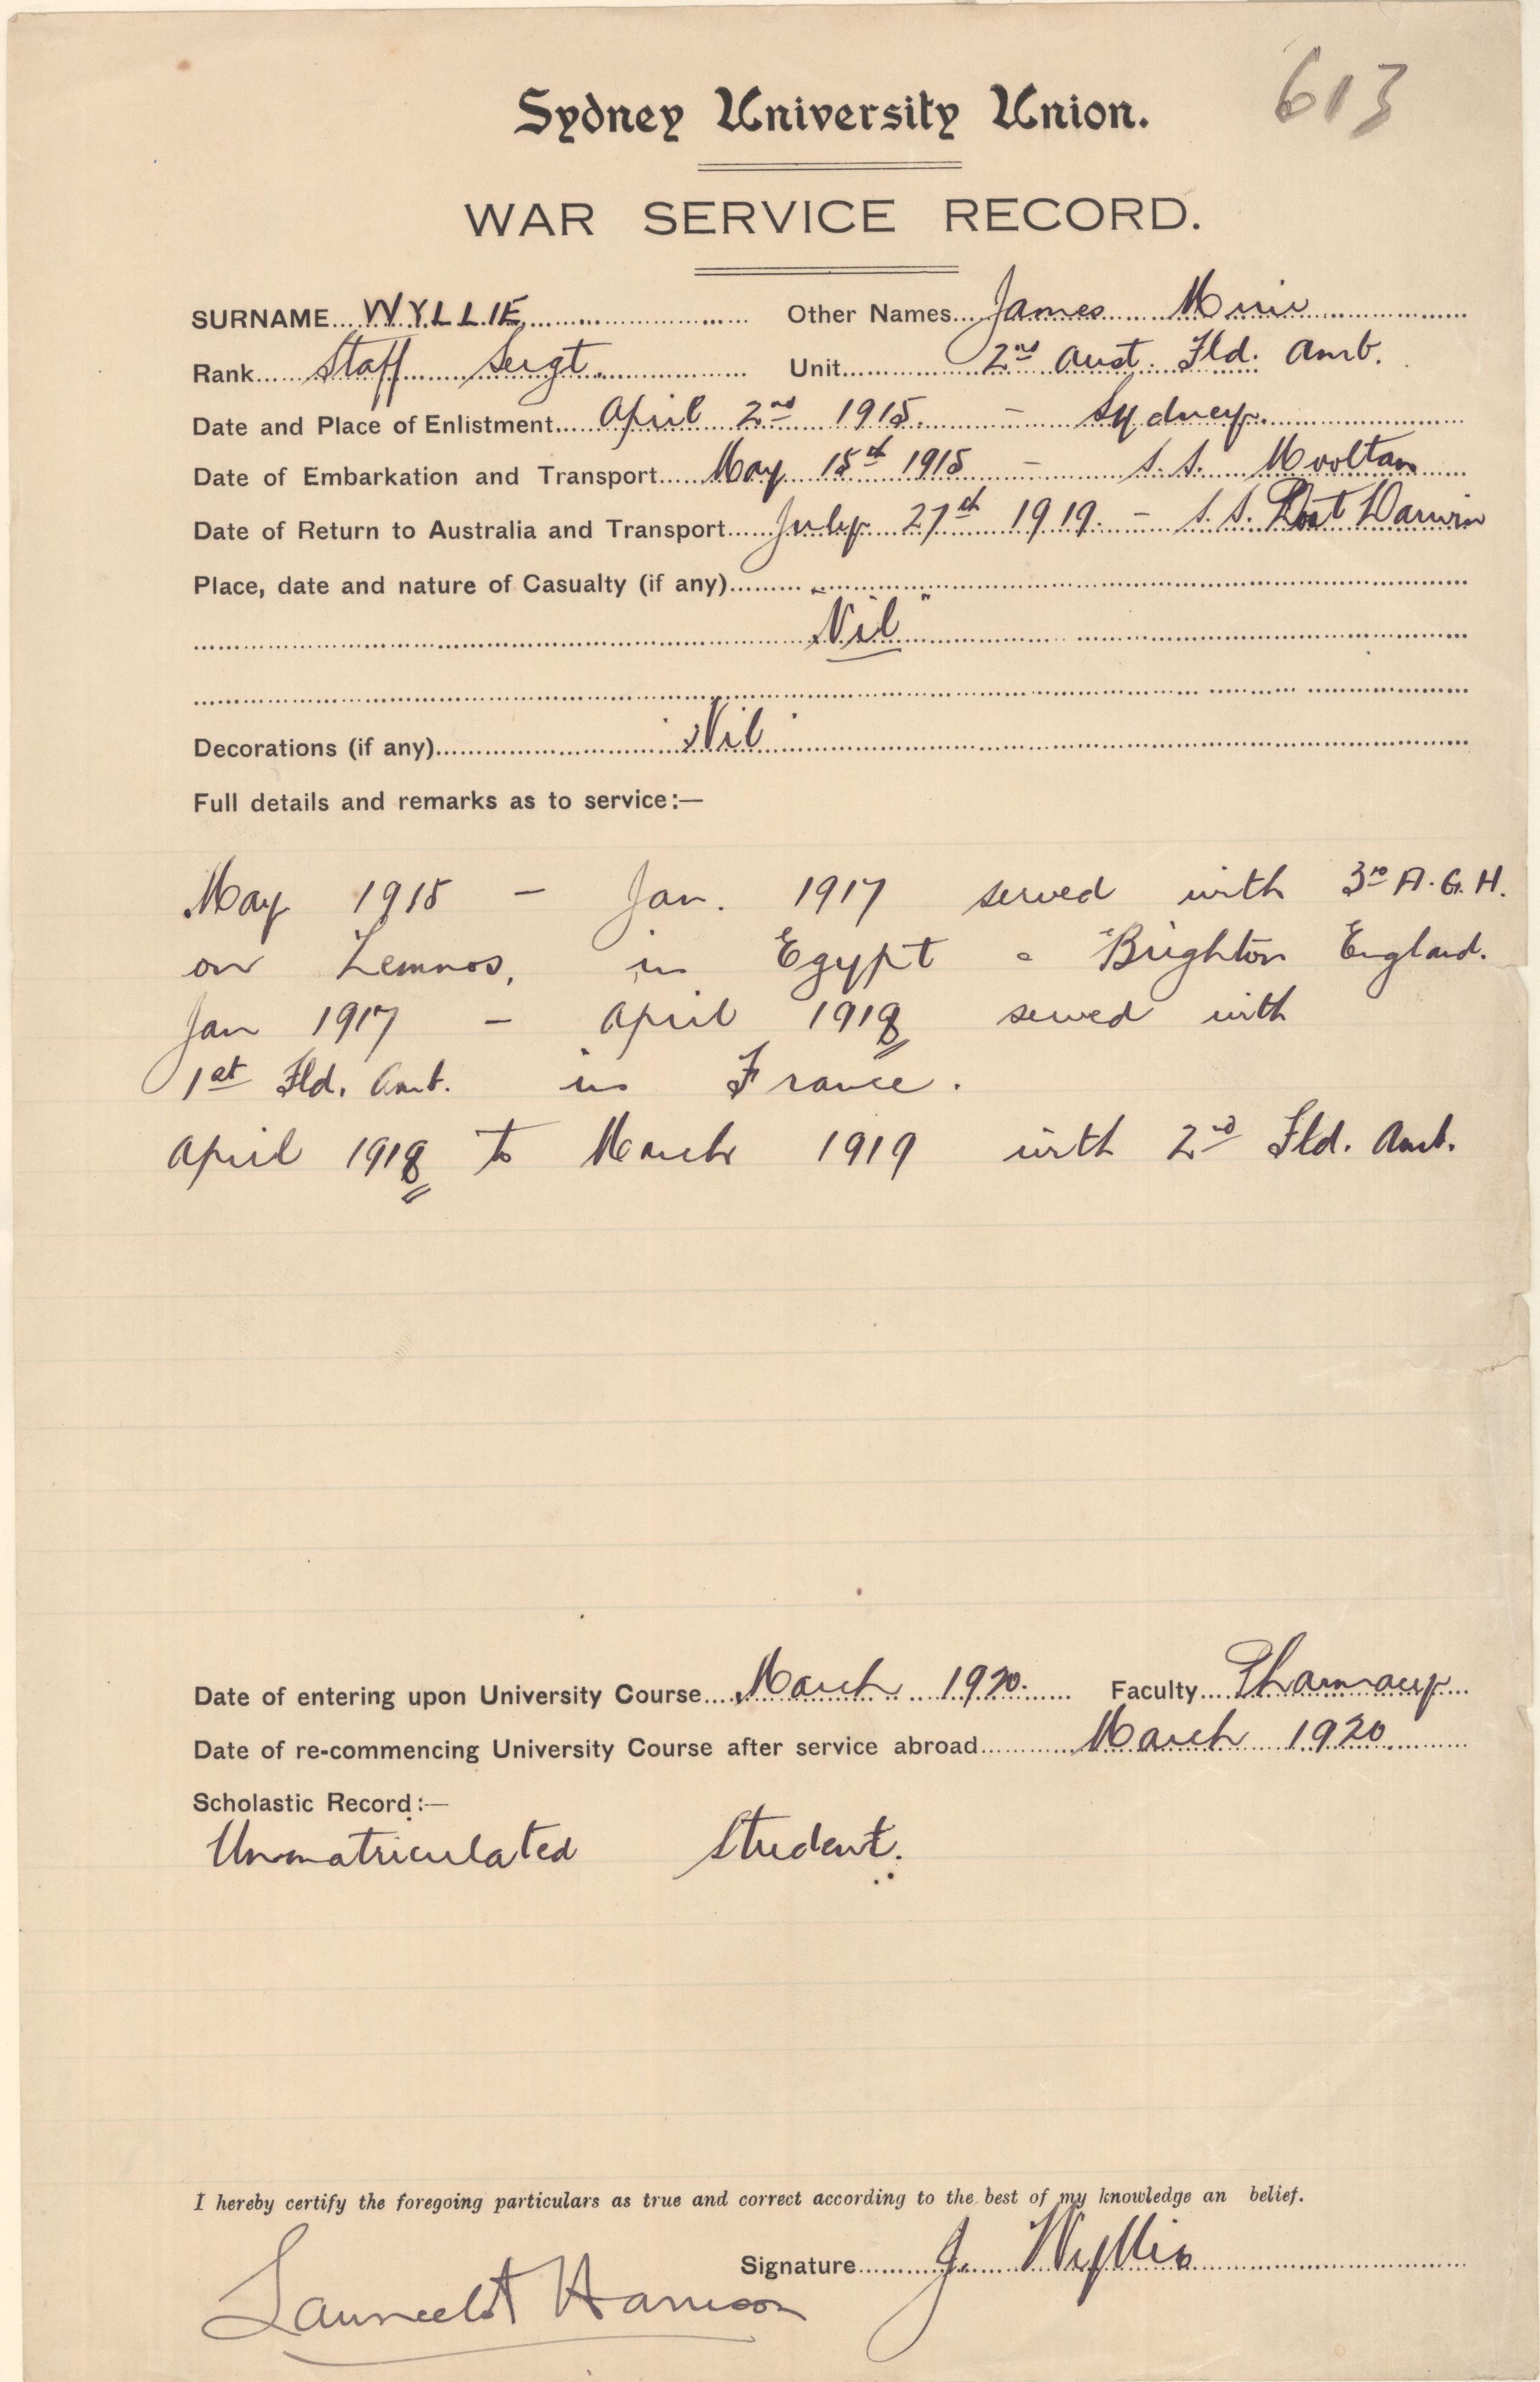 613
Sydney University Union.
WAR SERVICE RECORD.
SURNAME WYLLIE Other Names James Muir
Rank Staff Sergt. Unit 2nd Aust. Fld. Amb.
Date and Place of Enlistment April 2nd 1915. – Sydney.
Date of Embarkation and Transport May 15th 1915 – S.S. Mooltan
Date of Return to Australia and Transport July 27th 1919. – S.S. Port Darwin
Place, date and nature of Casualty (if any)
"Nil"
Decorations (if any) "Nil"
Full details and remarks as to service:—
May 1915 – Jan. 1917 served with 3rd A.G.H.
on Lemnos, in Egypt & Brighton England.
Jan 1917 – April 1918 served with
1st Fld. Amb. in France.
April 1918 to March 1919 with 2nd Fld. Amb.
Date of entering upon University Course March 1920. Faculty Pharmacy
Date of re-commencing University Course after service abroad March 1920
Scholastic Record:—
Unmatriculated Student.
I hereby certify the foregoing particulars as true and correct according to the best of my knowledge an belief.
Signature J. Wyllie
Launcelot Harrison